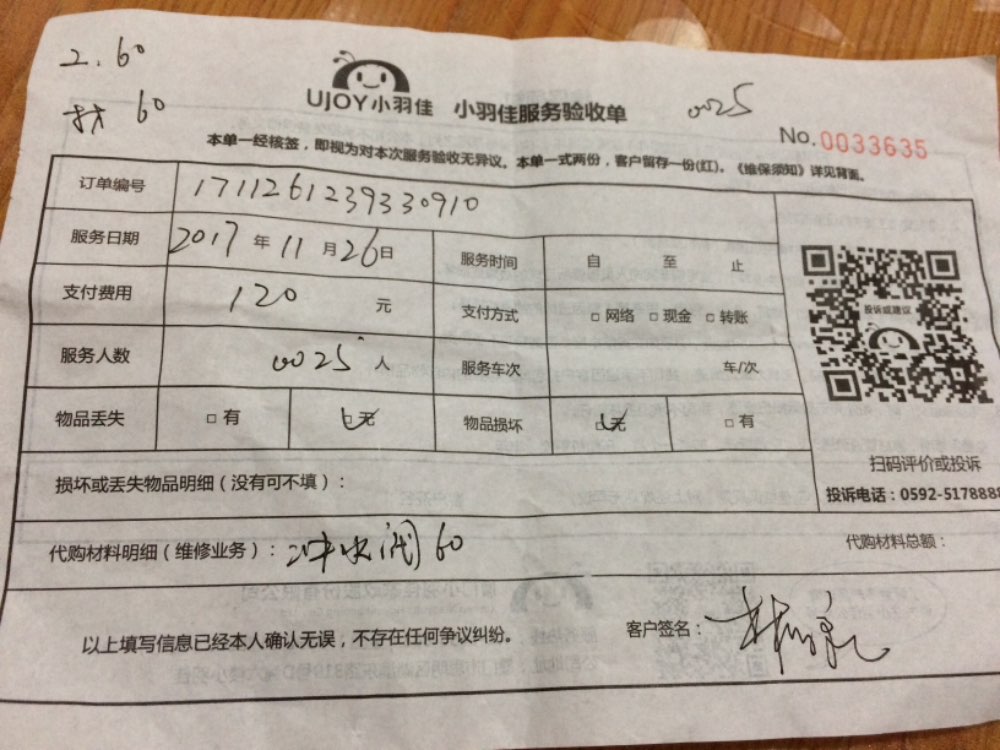 2.60
材 60
UJOY小羽佳 小羽佳服务验收单
0025
No. 0033635
本单一经核签，即视为对本次服务验收无异议。本单一式两份，客户留存一份(红)。《维保须知》详见背面。
订单编号 1711261239330910
服务日期 2017 年 11 月 26 日 服务时间 自 至 止
支付费用 120 元 支付方式 □ 网络 □ 现金 □ 转账
服务人数 0025 人 服务车次 车/次
物品丢失 □ 有 □ 无 物品损坏 □ 无 □ 有
投诉或建议
扫码评价或投诉
投诉电话：0592-5178888
损坏或丢失物品明细（没有可不填）：
代购材料明细（维修业务）：冲水阀60
代购材料总额：
以上填写信息已经本人确认无误，不存在任何争议纠纷。
客户签名：